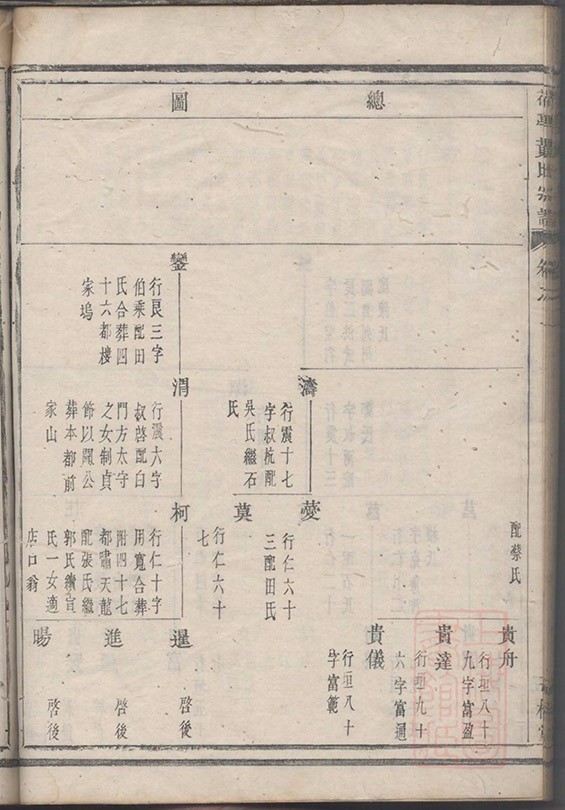 總圖
配蔡氏
貴舟
行垣八十
九字富盈
貴達
行垣九十
六字富通
貴儀
行垣八十
字富範
濤
行震十七
字叔杭配
吳氏繼石
氏
薆
行仁六十
三配田氏
蓂
行仁六十
七
鑾
行艮三字
伯乘配田
氏合葬四
十六都樓
家塢
渭
行震六字
叔啓配白
門方太守
之女制貞
節以闢公
葬本都前
家山
柯
行仁十字
用寬合葬
附四十七
都嘯天龍
配張氏繼
郭氏續宣
氏一女適
店口翁
暹
啓後
進
啓後
暘
啓後